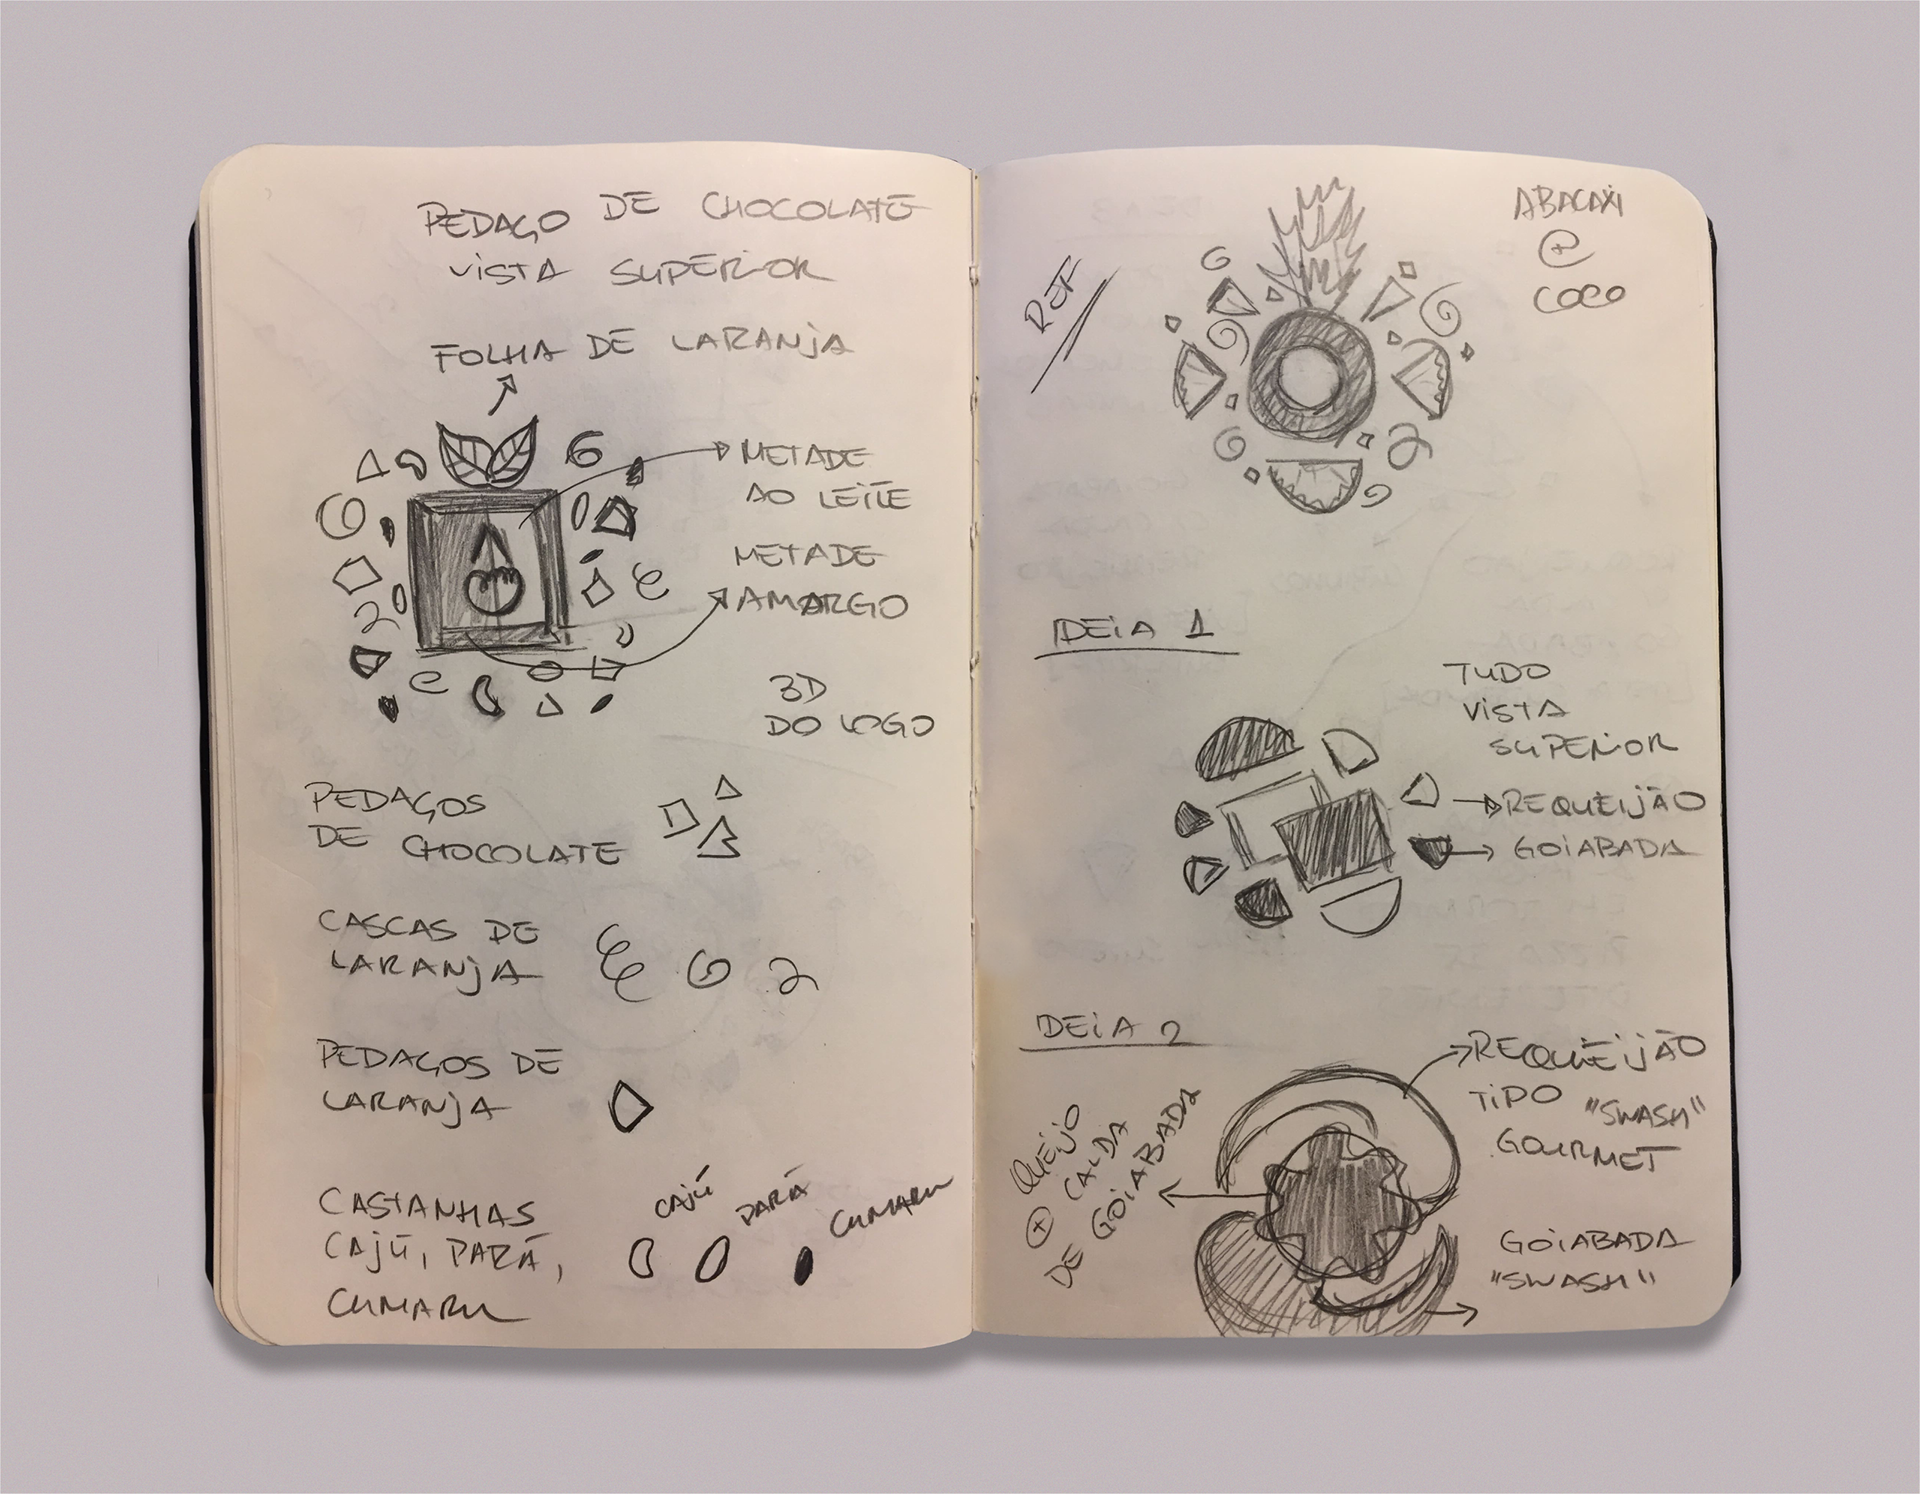 PEDAÇO DE CHOCOLATE
VISTA SUPERIOR
FOLHA DE LARANJA
METADE
AO LEITE
METADE
AMARGO
3D
DO LOGO
PEDAÇOS
DE CHOCOLATE
CASCAS DE
LARANJA
PEDAÇOS DE
LARANJA
CASTANHAS
CAJÚ, PARÁ,
CUMARU
CAJÚ
PARÁ
CUMARU
REF
ABACAXI
+
COCO
IDEIA 1
TUDO
VISTA
SUPERIOR
REQUEIJÃO
GOIABADA
IDEIA 2
REQUEIJÃO
TIPO "SWASH"
GOURMET
QUEIJO
+ CALDA
DE GOIABADA
GOIABADA
"SWASH"